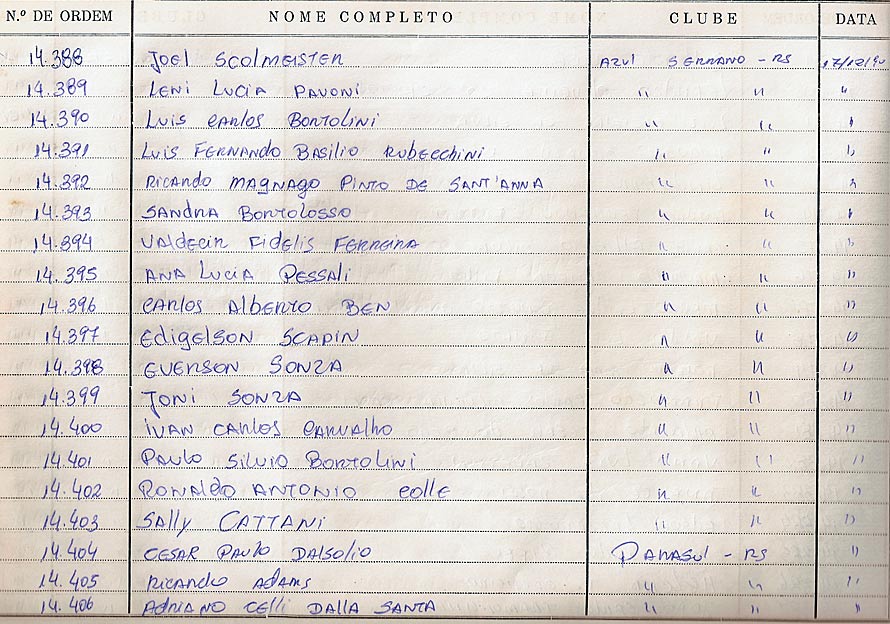 N.º DE ORDEM NOME COMPLETO CLUBE DATA
14.388 Joel Scolmeister Azul Serrano - RS 17/12/90
14.389 Leni Lucia Pavoni " " "
14.390 Luis Carlos Bortolini " " "
14.391 Luis Fernando Basilio Rubecchini " " "
14.392 Ricardo Magnago Pinto de Sant'Anna " " "
14.393 Sandra Bortolosso " " "
14.394 Valdecir Fidelis Ferreira " " "
14.395 Ana Lucia Pessali " " "
14.396 Carlos Alberto Ben " " "
14.397 Edigelson Scapin " " "
14.398 Everson Sonza " " "
14.399 Joni Sonza " " "
14.400 Ivan Carlos Carvalho " " "
14.401 Paulo Silvio Bortolini " " "
14.402 Ronaldo Antonio Colle " " "
14.403 Sally Cattani " " "
14.404 Cesar Paulo Dalsolio Parasul - RS "
14.405 Ricardo Adams " " "
14.406 Adriano Celli Dalla Santa " " "